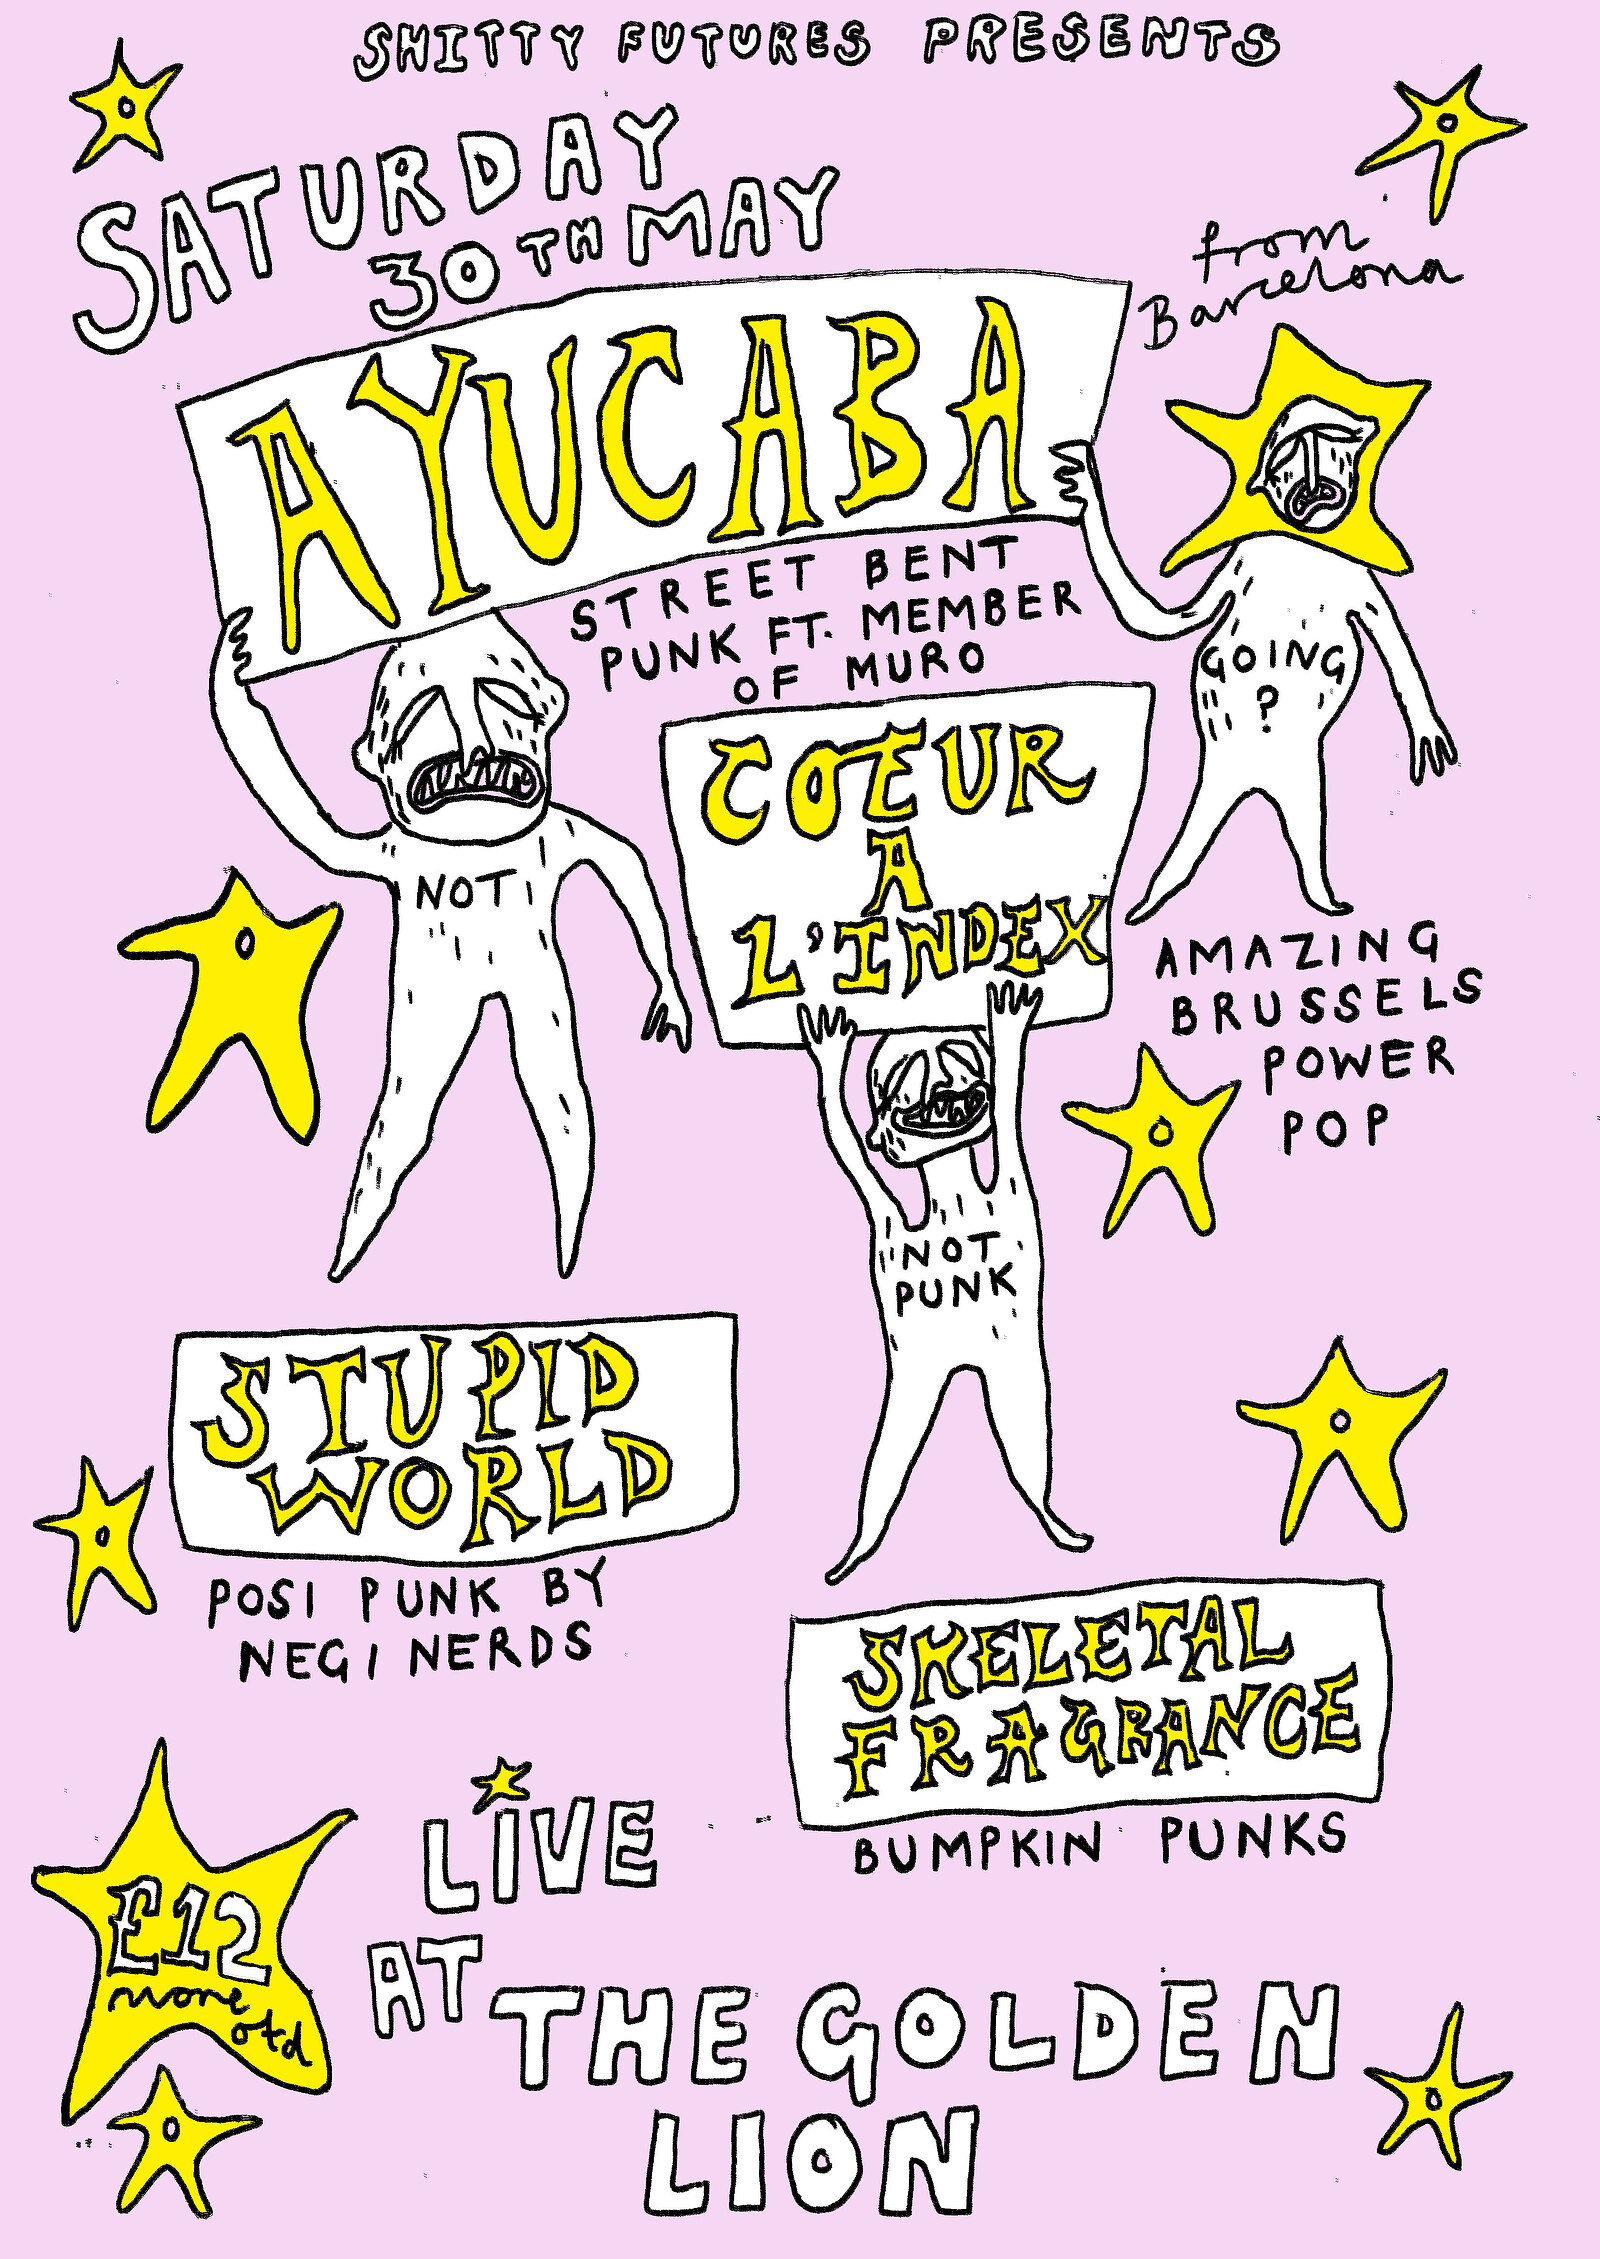 SHITTY FUTURES PRESENTS
SATURDAY
30TH MAY
from
Barcelona
AYUCABA
STREET BENT
PUNK FT. MEMBER
OF MURO
GOING
?
NOT
COEUR
A
L'INDEX
AMAZING
BRUSSELS
POWER
POP
NOT
PUNK
STUPID
WORLD
POSI PUNK BY
NEGI NERDS
SKELETAL
FRAGRANCE
BUMPKIN PUNKS
£12
more
otd
LIVE
AT
THE GOLDEN
LION